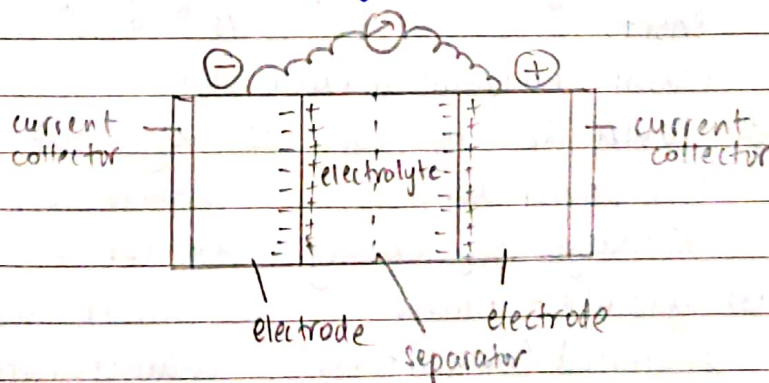 ⊖ ⊕
current collector
- + - +
- + - +
- + - +
- + - +
electrolyte
- + - +
- + - +
- + - +
- + - +
current collector
electrode
separator
electrode